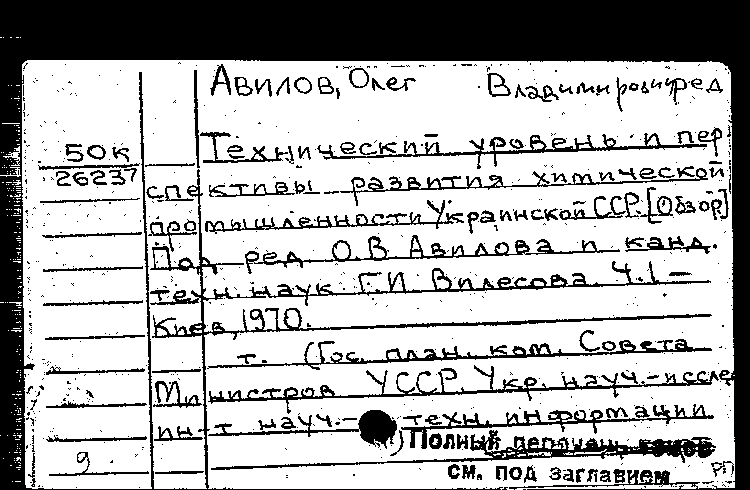 Авилов, Олег Владимирович ред
50к Технический уровень и пер
26237 спективы развития химической
промышленности Украинской ССР. [Обзор]
Под ред. О.В. Авилова и канд.
техн. наук Г.И. Вилесова. Ч.1 –
Киев, 1970.
т. (Гос. план. ком. Совета
Министров УССР. Укр. науч.-исслед
ин-т науч.- техн. информации
) Полный перечень томов
9 см. под заглавием РП